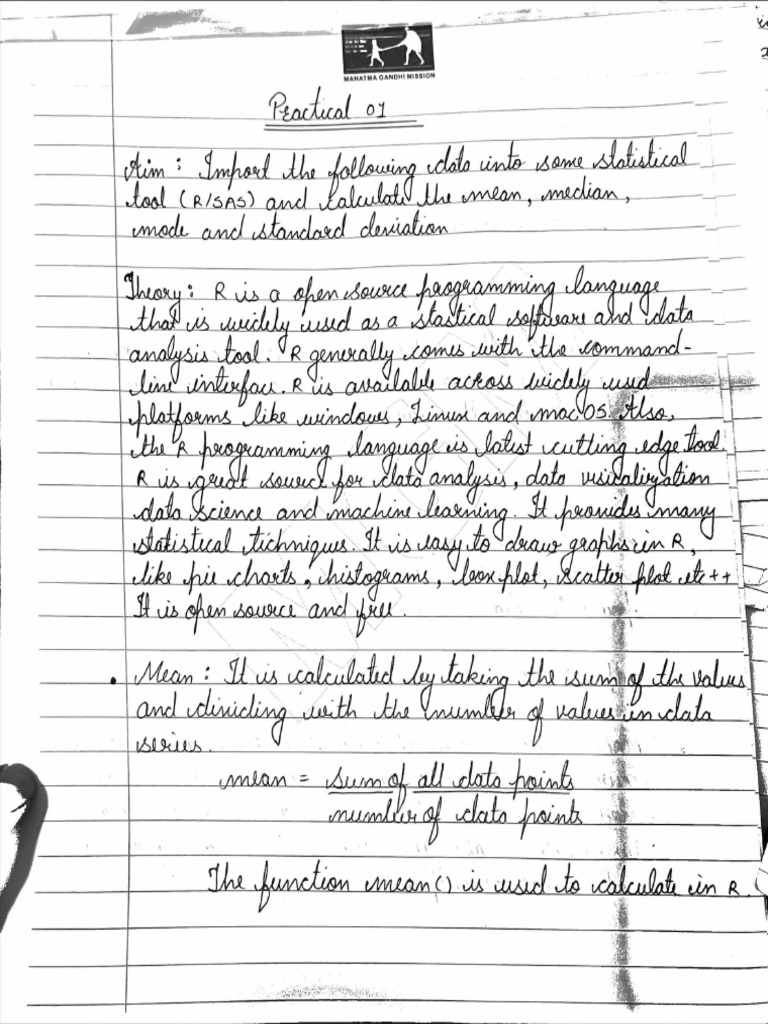 MAHATMA GANDHI MISSION
Practical 01
Aim : Import the following data into some statistical
tool (R/SAS) and calculate the mean, median,
mode and standard deviation
Theory : R is a open source programming language
that is widely used as a stastical software and data
analysis tool. R generally comes with the command-
line interface. R is available across widely used
platforms like windows, Linux and macOS. Also,
the R programming language is latest cutting edge tool.
R is great source for data analysis, data visualization
data science and machine learning. It provides many
statistical techniques. It is easy to draw graphs in R,
like pie charts, histograms, box plot, scatter plot etc++
It is open source and free.
• Mean : It is calculated by taking the sum of the values
and dividing with the number of values in data
series.
mean = sum of all data points
number of data points
The function mean() is used to calculate in R.